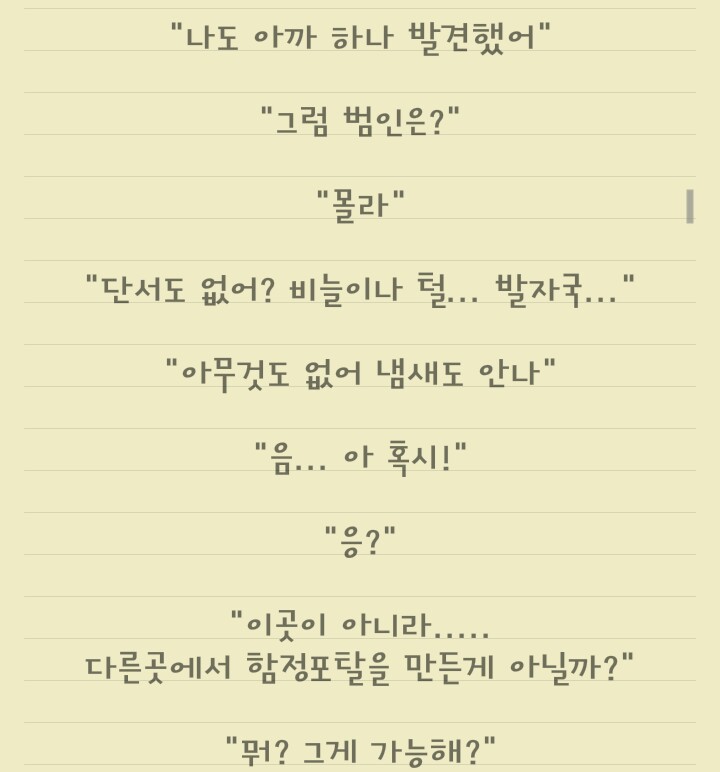 "나도 아까 하나 발견했어"
"그럼 범인은?"
"몰라"
"단서도 없어? 비늘이나 털... 발자국..."
"아무것도 없어 냄새도 안나"
"음... 아 혹시!"
"응?"
"이곳이 아니라.....
다른곳에서 함정포탈을 만든게 아닐까?"
"뭐? 그게 가능해?"